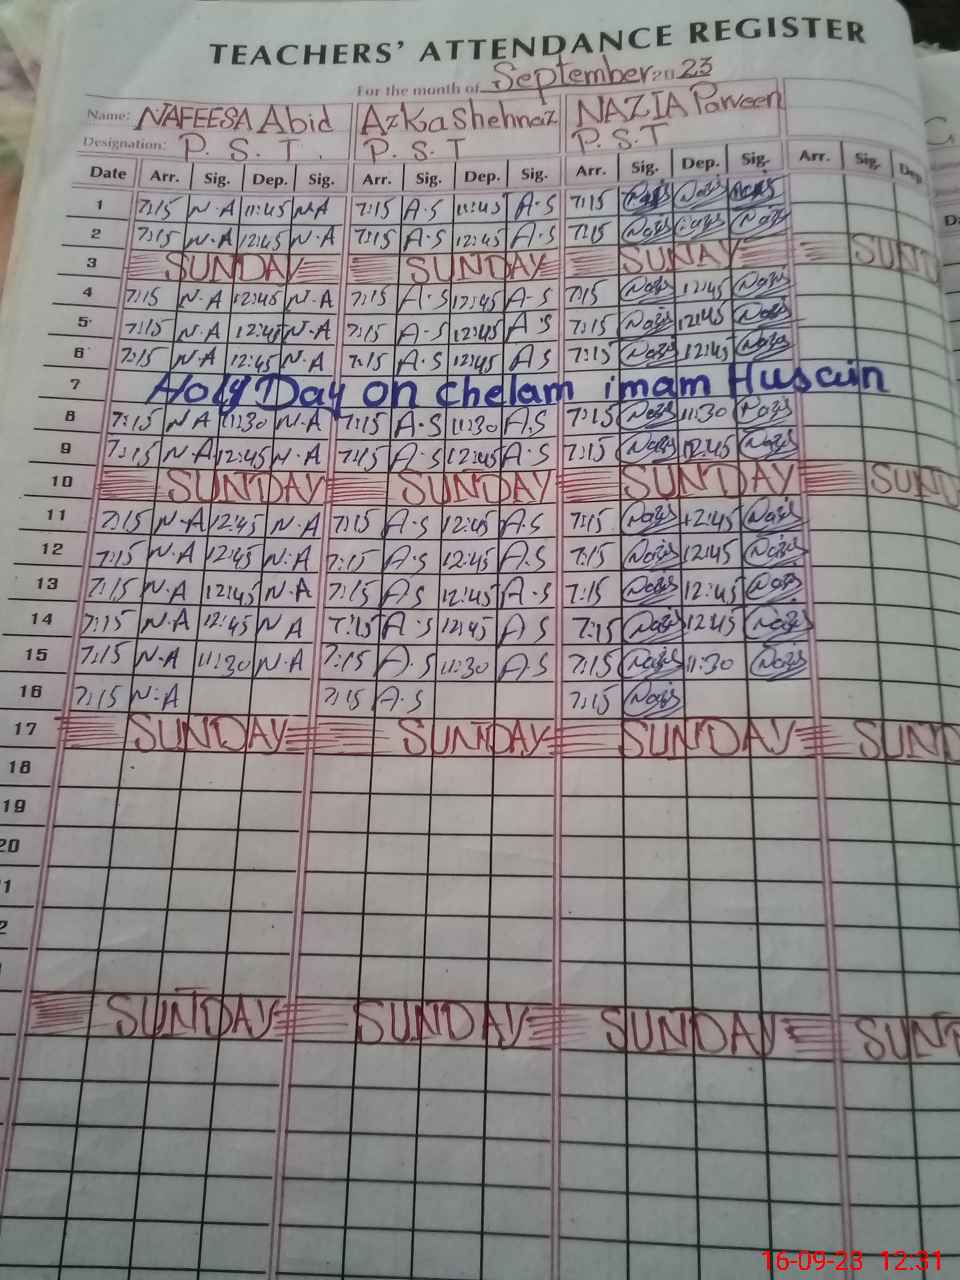 TEACHERS' ATTENDANCE REGISTER
For the month of September 2023
Name: NAFEESA Abid AzKa Shehnaz NAZIA Parveen
Designation: P. S. T. P. S. T P. S. T
Date Arr. Sig. Dep. Sig. Arr. Sig. Dep. Sig. Arr. Sig. Dep. Sig. Arr. Sig. Dep
1 7:15 N.A 11:45 NA 7:15 A.S 11:45 A.S 7:15
2 7:15 N.A 12:45 N.A 7:15 A.S 12:45 A.S 7:15
3 SUNDAY SUNDAY SUNAY SUND
4 7:15 N.A 12:45 N.A 7:15 A.S 12:45 A.S 7:15 12:45
5 7:15 N.A 12:45 N.A 7:15 A.S 12:45 A.S 7:15 12:45
6 7:15 N.A 12:45 N.A 7:15 A.S 12:45 A.S 7:15 12:45
7 Holy Day on chelam imam Husain
8 7:15 N A 11:30 N.A 7:15 A.S 11:30 A.S 7:15 11:30
9 7:15 N.A 12:45 N.A 7:15 A.S 12:45 A.S 7:15 12:45
10 SUNDAY SUNDAY SUNDAY SUND
11 7:15 N.A 12:45 N.A 7:15 A.S 12:45 A.S 7:15 12:45
12 7:15 N.A 12:45 N.A 7:15 A.S 12:45 A.S 7:15 12:45
13 7:15 N.A 12:45 N.A 7:15 A.S 12:45 A.S 7:15 12:45
14 7:15 N.A 12:45 N A 7:15 A.S 12:45 A S 7:15 12:45
15 7:15 N.A 11:30 N.A 7:15 A.S 11:30 A.S 7:15 11:30
16 7:15 N.A 7:15 A.S 7:15
17 SUNDAY SUNDAY SUNDAY SUND
18
19
20
1
2
SUNDAY SUNDAY SUNDAY SUNT
16-09-23 12:31